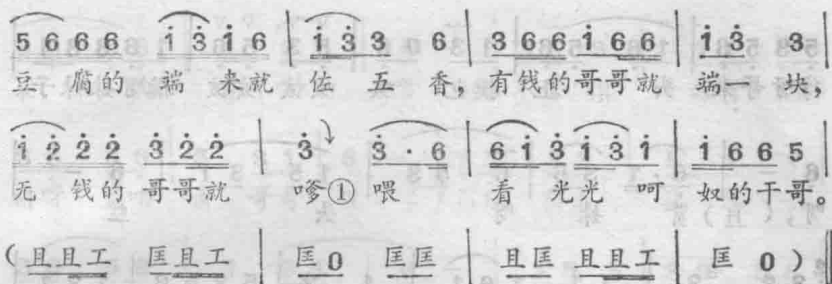 5 6 6 6 i 3 i 6 | i 3 3 6 | 3 6 6 i 6 6 | i 3 3 |
豆 腐的 端 来就 佐 五 香，有钱的哥哥就 端一 块，
i 2 2 2 3 2 2 | 3 3 · 6 | 6 i 3 i 3 i | i 6 6 5 |
无 钱的 哥哥就 嗲① 喂 看 光光 呵 奴的干哥。
（且且工 匡且工 | 匡 0 匡匡 | 且匡 且且工 | 匡 0 ）‖